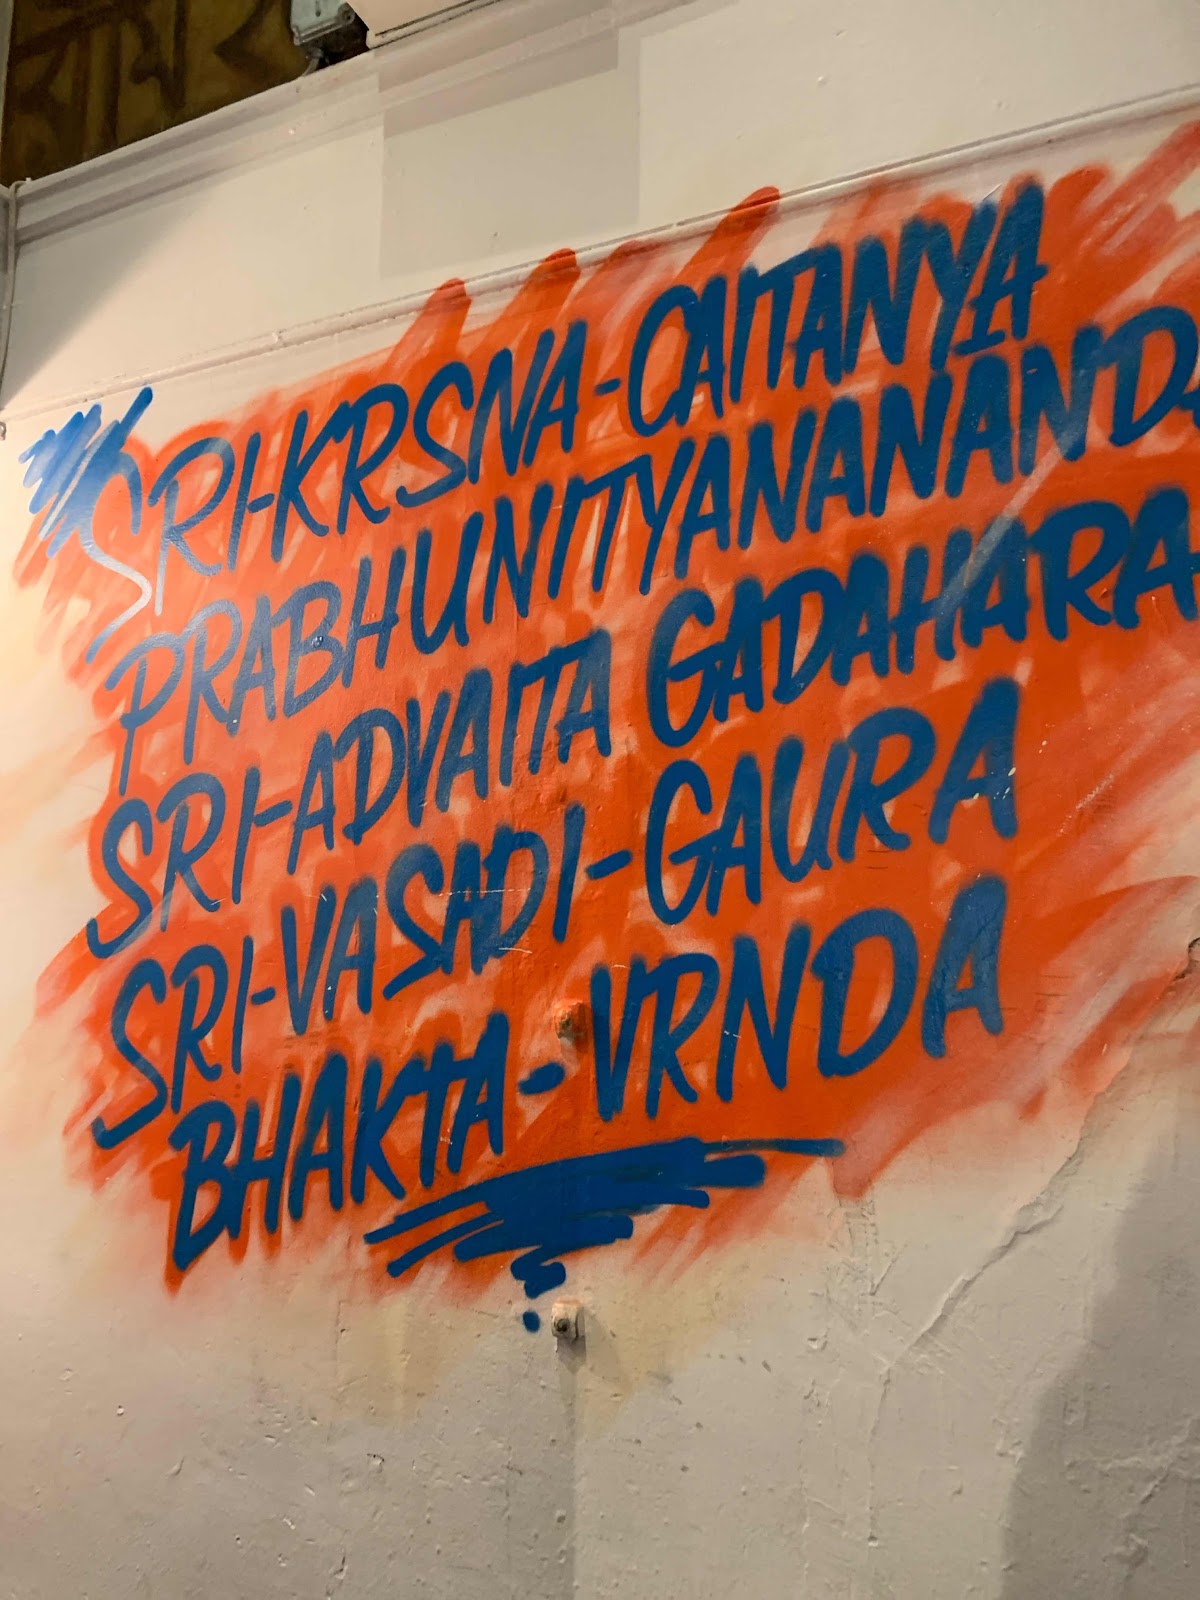 SRI-KRSNA-CAITANYA
PRABHUNITYANANANDA
SRI-ADVAITA GADAHARA
SRI-VASADI-GAURA
BHAKTA-VRNDA